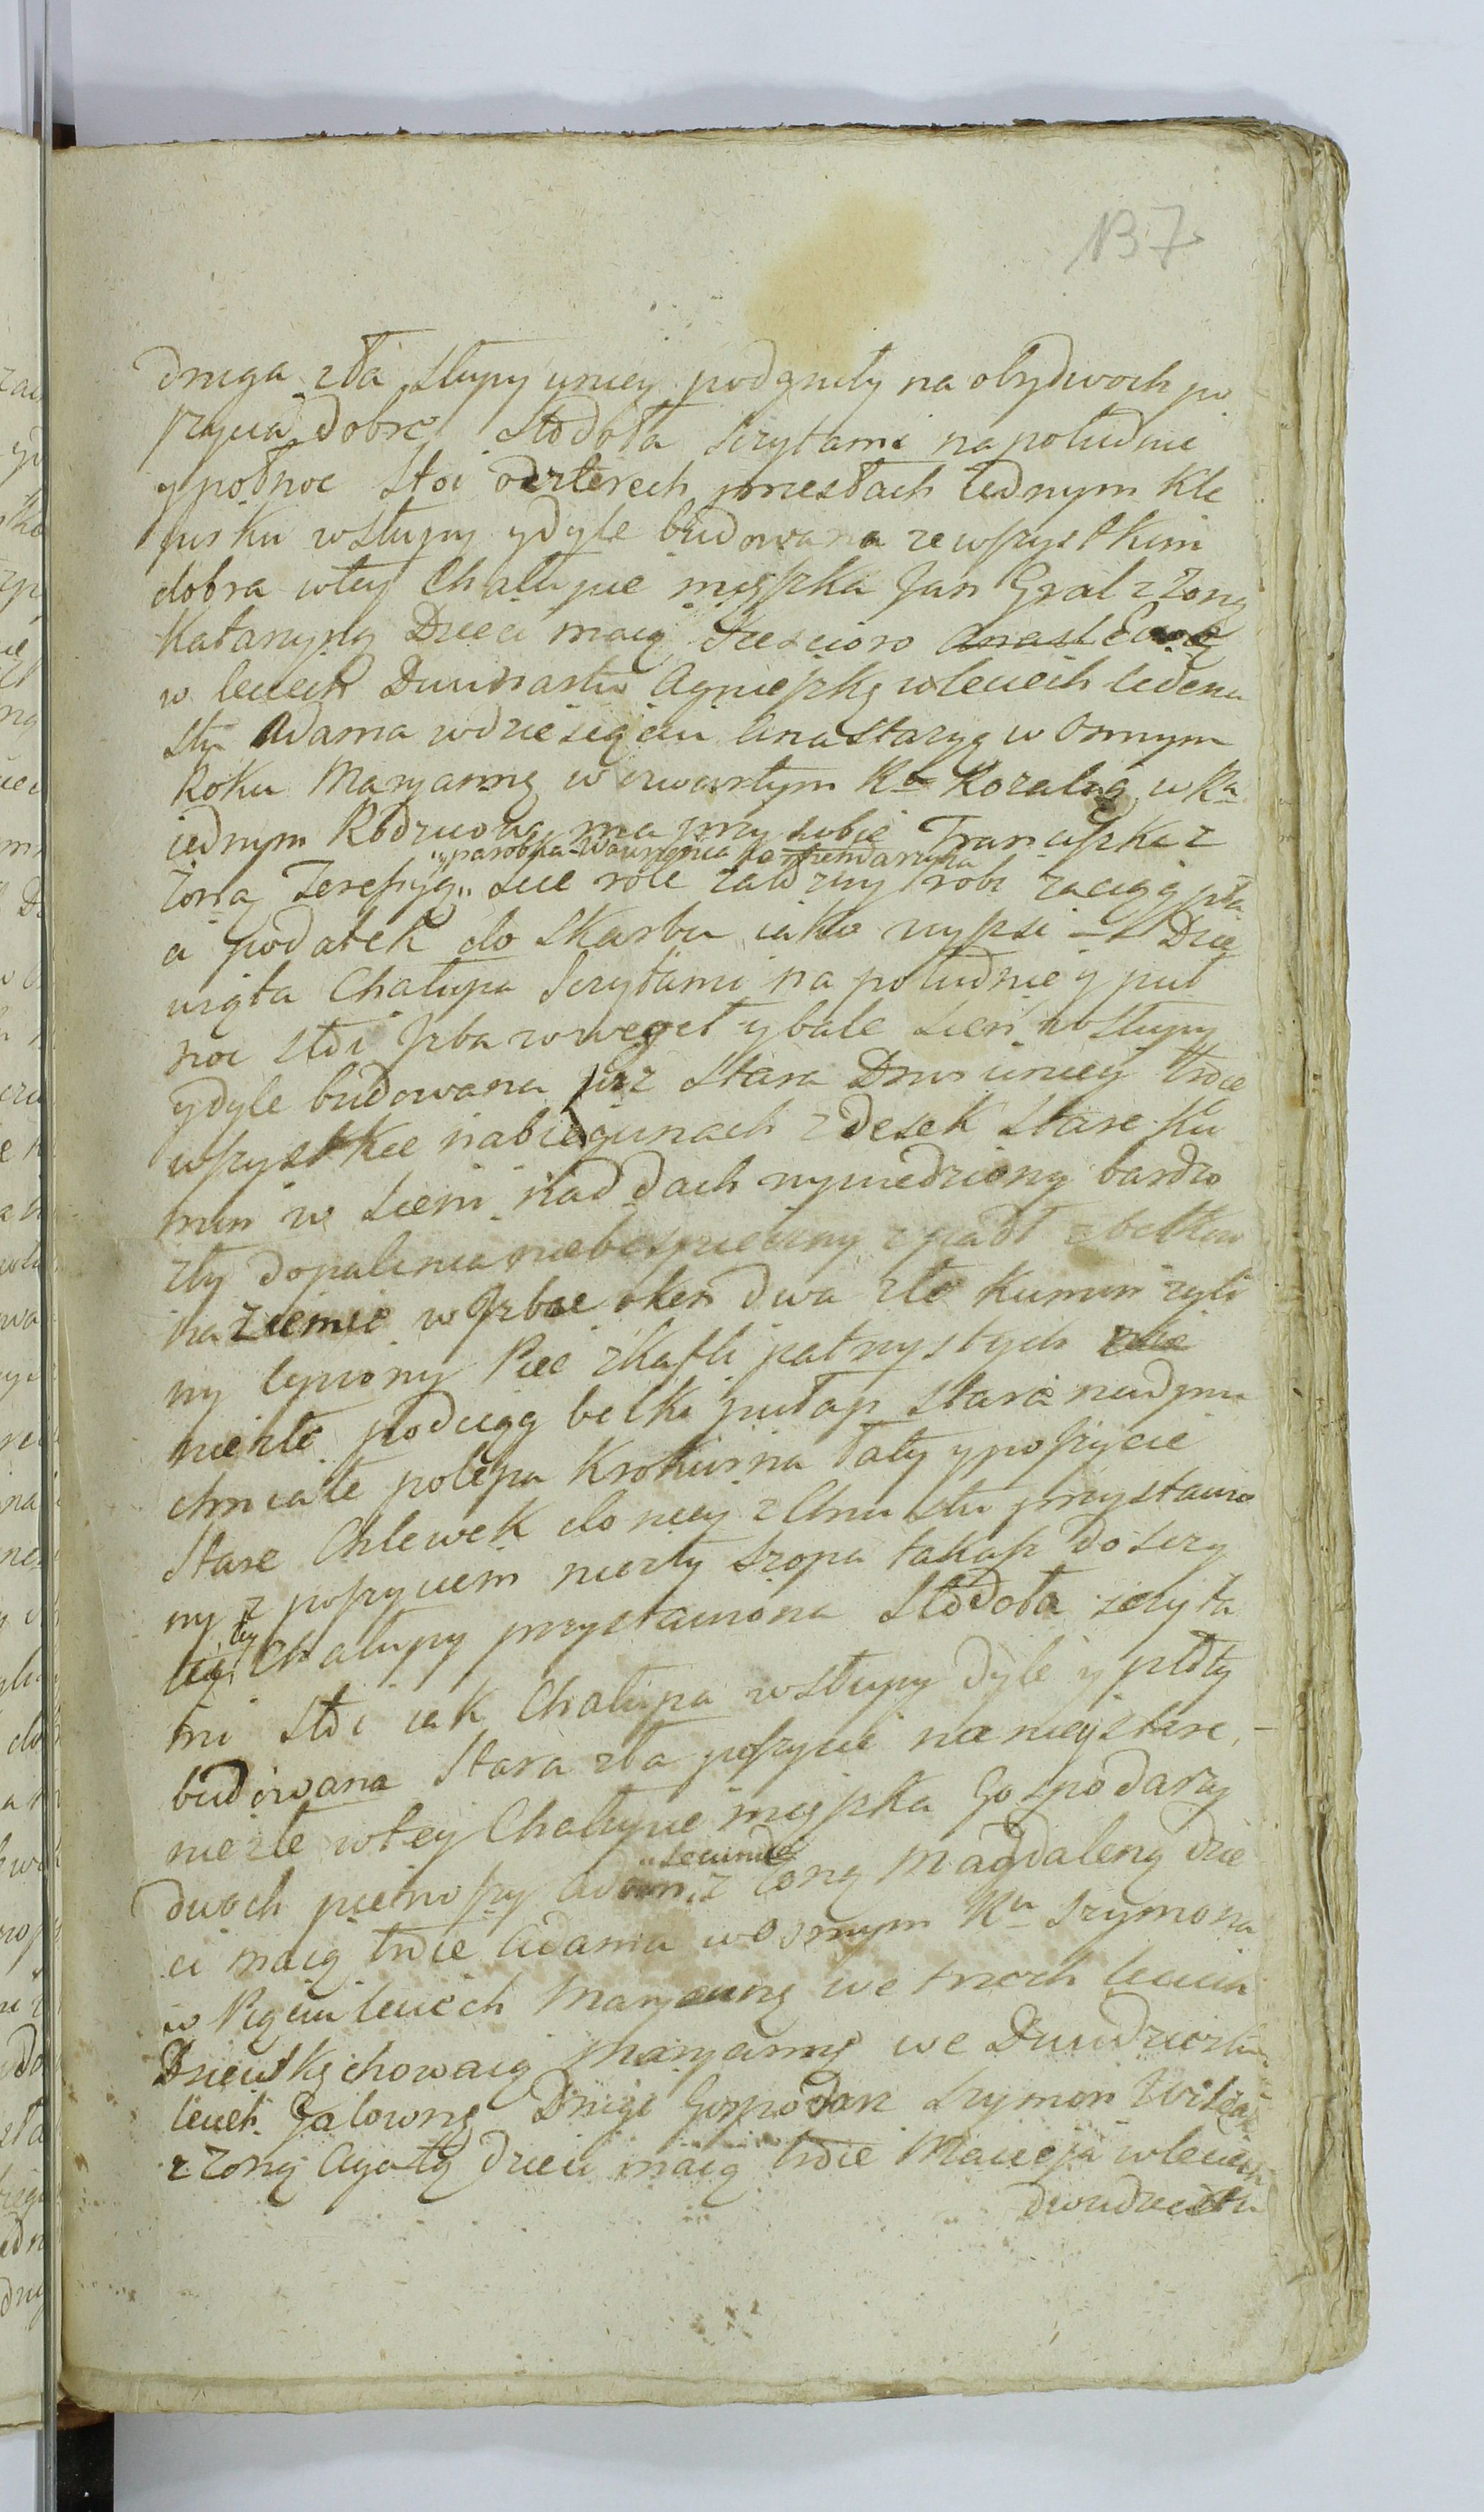 137
druga zła słupy uniey podgniły na obydwoch po
szycia dobre Stodoła Szczytami na południe
y połnoc stoi oczterech przesłach iednym kle
pisku wsłupy ydyle budowana ze wszystkim
dobra wtey Chałupie mięszka Jan Gral z Żoną
Katarzyną Dzieci maią sześcioro Anast Ewę
w leciech Dwunastu Agnieszkę wleciech iedena
stu Adama wdziesięciu Anastazyą w osmym
Roku Maryannę w czwartym Ru Rozalią w Ru
iednym Rodzicow ma przy sobie Franciszka z
"y parobka Wawrzeńca
Żoną Teressyą" Siie role zaciąg robi zaciąg pła
ci podatek do Skarbu iako wyższi – Dzie
wiąta Chałupa Szczytami na południe y puł
noc stoi Jzba wwegieł ybale Sień wsłupy
ydyle budowana iuż stara Drzwi uniey troie
wszystkie nabiegunach zdesek stare Ku
min w Sieni nad dach wywiedziony bardzo
zły dopalenia niebespieczny spadł zbelkow
na Ziemie w Jzbie okien dwa złe Kumin gli
ny lepiony Piec zkafli patrzystych
niezłe podciąg belki pułap stare nadymu
chniałe polepa Krokwina łaty y poszycie
stare Chlewek do niey z Chrustu przystawio
ny z poszyciem niezły szopa także do sczy
tu tey Chałupy przystawiona Stodoła sczyta
mi stoi iak Chałupa wsłupy dyle y płoty
budowana stara zła poszycie na niey stare
niezłe wtey Chałupie mięszka Gospodarzy
dwoch pierwszy Adam z Żoną Magdaleną dzie
ci maią troie Adama wosmym Ru Szymona
w Pięciu leciech Maryannę we trzech leciech
Dziewkę chowaią Maryannę we Dwudziestu
leciech Galowną Drugi Gospodarz Szymon
z Żoną Agatą dzieci maią troie Macieja wleciech
dwudziestu